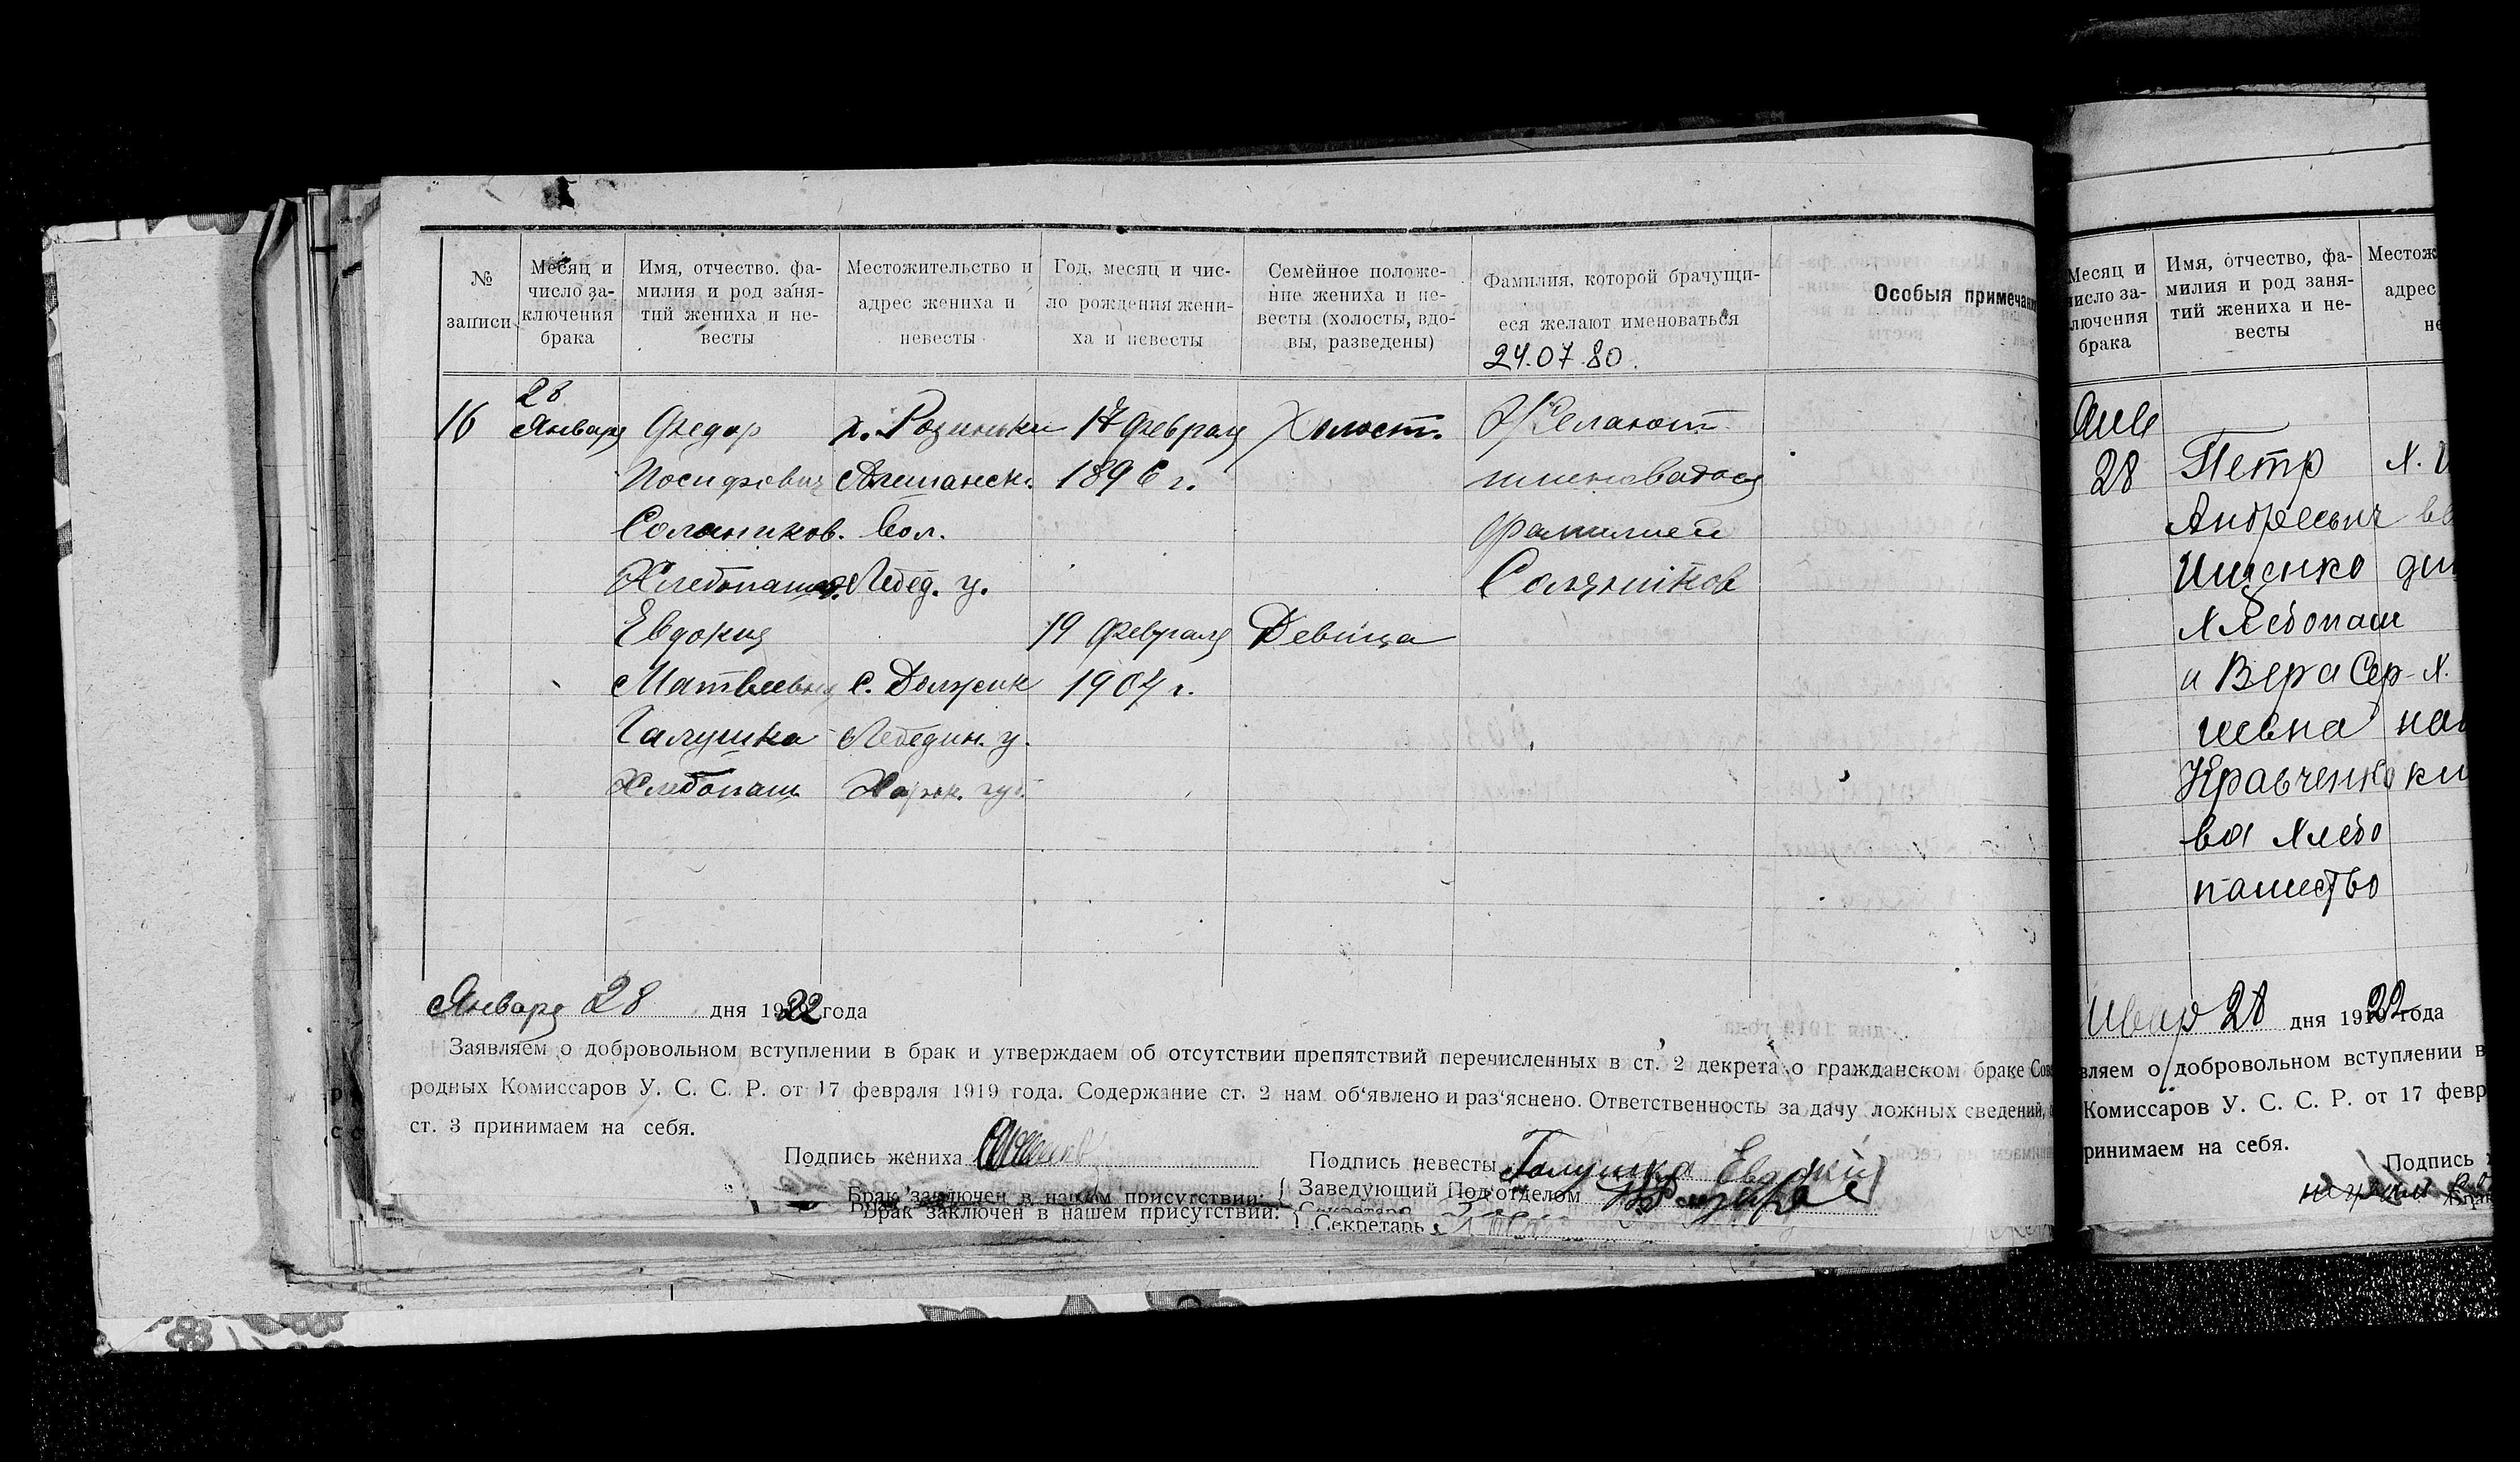 № записи
Месяц и число заключения брака
Имя, отчество. фамилия и род занятий жениха и невесты
Местожительство и адрес жениха и невесты
Год, месяц и число рождения жениха и невесты
Семейное положение жениха и невесты (холосты, вдовы, разведены)
Фамилия, которой брачущиеся желают именоваться
24.07.80.
Особыя примечани
28
16 Января Федор х. Розиньки 17 Февраля Холост. Желают
Иосифович Алешанск. 1896 г. именоватся
Соляников. вол. фамилией
Хлебопаш. Лебед. у. Соляников
Евдокия 19 Февраля Девица
Матвеевна с. Должик 1904 г.
Галушка Лебедин. у.
Хлебопаш. Харьк. губ.
Января 28 дня 1922 года
Заявляем о добровольном вступлении в брак и утверждаем об отсутствии препятствий перечисленных в ст. 2 декрета о гражданском браке Сов
родных Комиссаров У. С. С. Р. от 17 февраля 1919 года. Содержание ст. 2 нам об‘явлено и раз‘яснено. Ответственность за дачу ложных сведений,
ст. 3 принимаем на себя.
Подпись жениха
Подпись невесты Галушка Евдокия
Брак заключен в нашем присутствии: Заведующий Под‘отделом
Брак заключен в нашем присутствии:
Секретарь
Месяц и
число за-
лючения
брака
Имя, отчество, фа-
милия и род заня-
тий жениха и не-
весты
Местож
адрес
не
28 Петр х.
Андреевич
Ищенко
Хлебопаш
и Вера Сер- х.
геевна
Кравченко
ва хлебо
пашество
28 дня 1922 года
вляем о добровольном вступлении в
Комиссаров У. С. С. Р. от 17 февр
ринимаем на себя.
Подпись